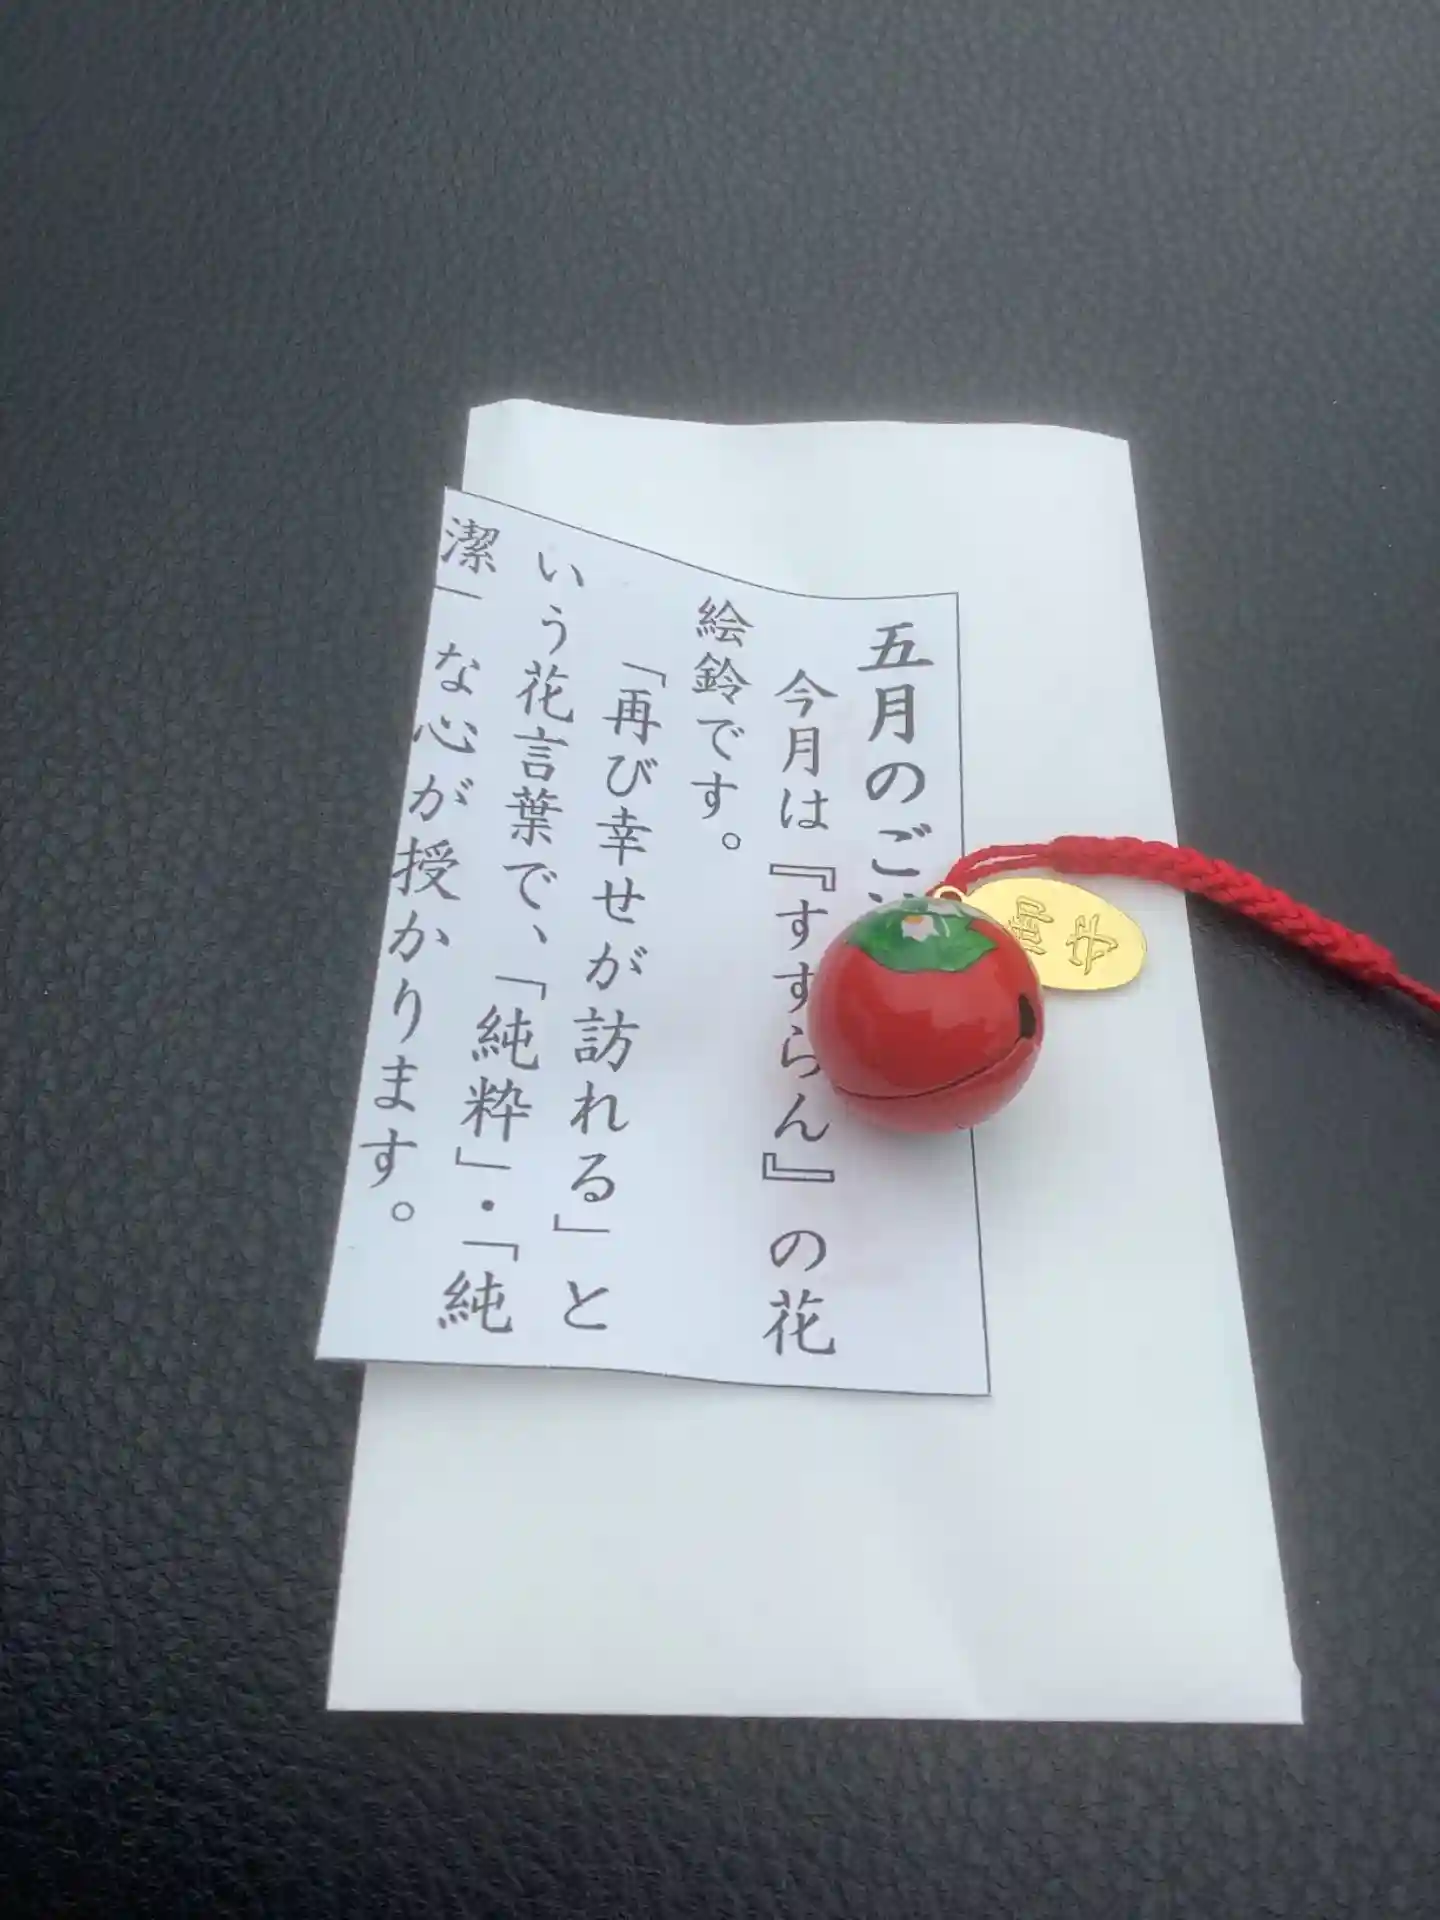 五月のご
今月は『すずらん』の花
絵鈴です。
「再び幸せが訪れる」と
いう花言葉で、「純粋」・「純
潔」な心が授かります。